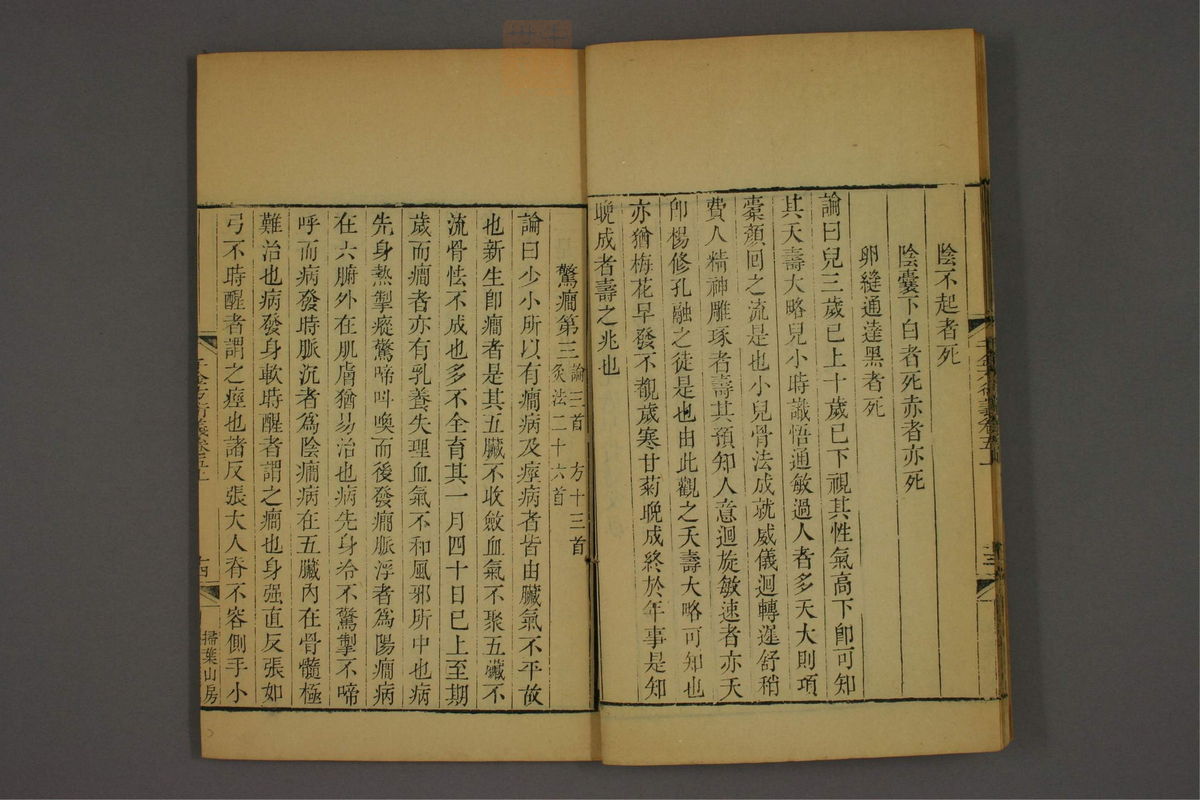 陰不起者死
陰囊下白者死赤者亦死
卵縫通達黑者死
論曰兒三歲已上十歲已下視其性氣高下卽可知
其夭壽大略兒小時識悟通敏過人者多夭大則項
橐顔回之流是也小兒骨法成就威儀迴轉遲舒稍
費人精神雕琢者壽其預知人意迴旋敏速者亦夭
卽楊修孔融之徒是也由此觀之夭壽大略可知也
亦猶梅花早發不覩歲寒甘菊晚成終於年事是知
晚成者壽之兆也
驚癇第三 論三首 方十三首
灸法二十六首
論曰少小所以有癇病及痙病者皆由臟氣不平故
也新生卽癇者是其五臟不收斂血氣不聚五臟不
流骨怯不成也多不全育其一月四十日已上至期
歲而癇者亦有乳養失理血氣不和風邪所中也病
先身熱掣瘲驚啼叫喚而後發癇脈浮者為陽癇病
在六腑外在肌膚猶易治也病先身冷不驚掣不啼
呼而病發時脈沉者爲陰癇病在五臟內在骨髓極
難治也病發身軟時醒者謂之癇也身强直反張如
弓不時醒者謂之痙也諸反張大人脊不容側手小
十四
掃葉山房